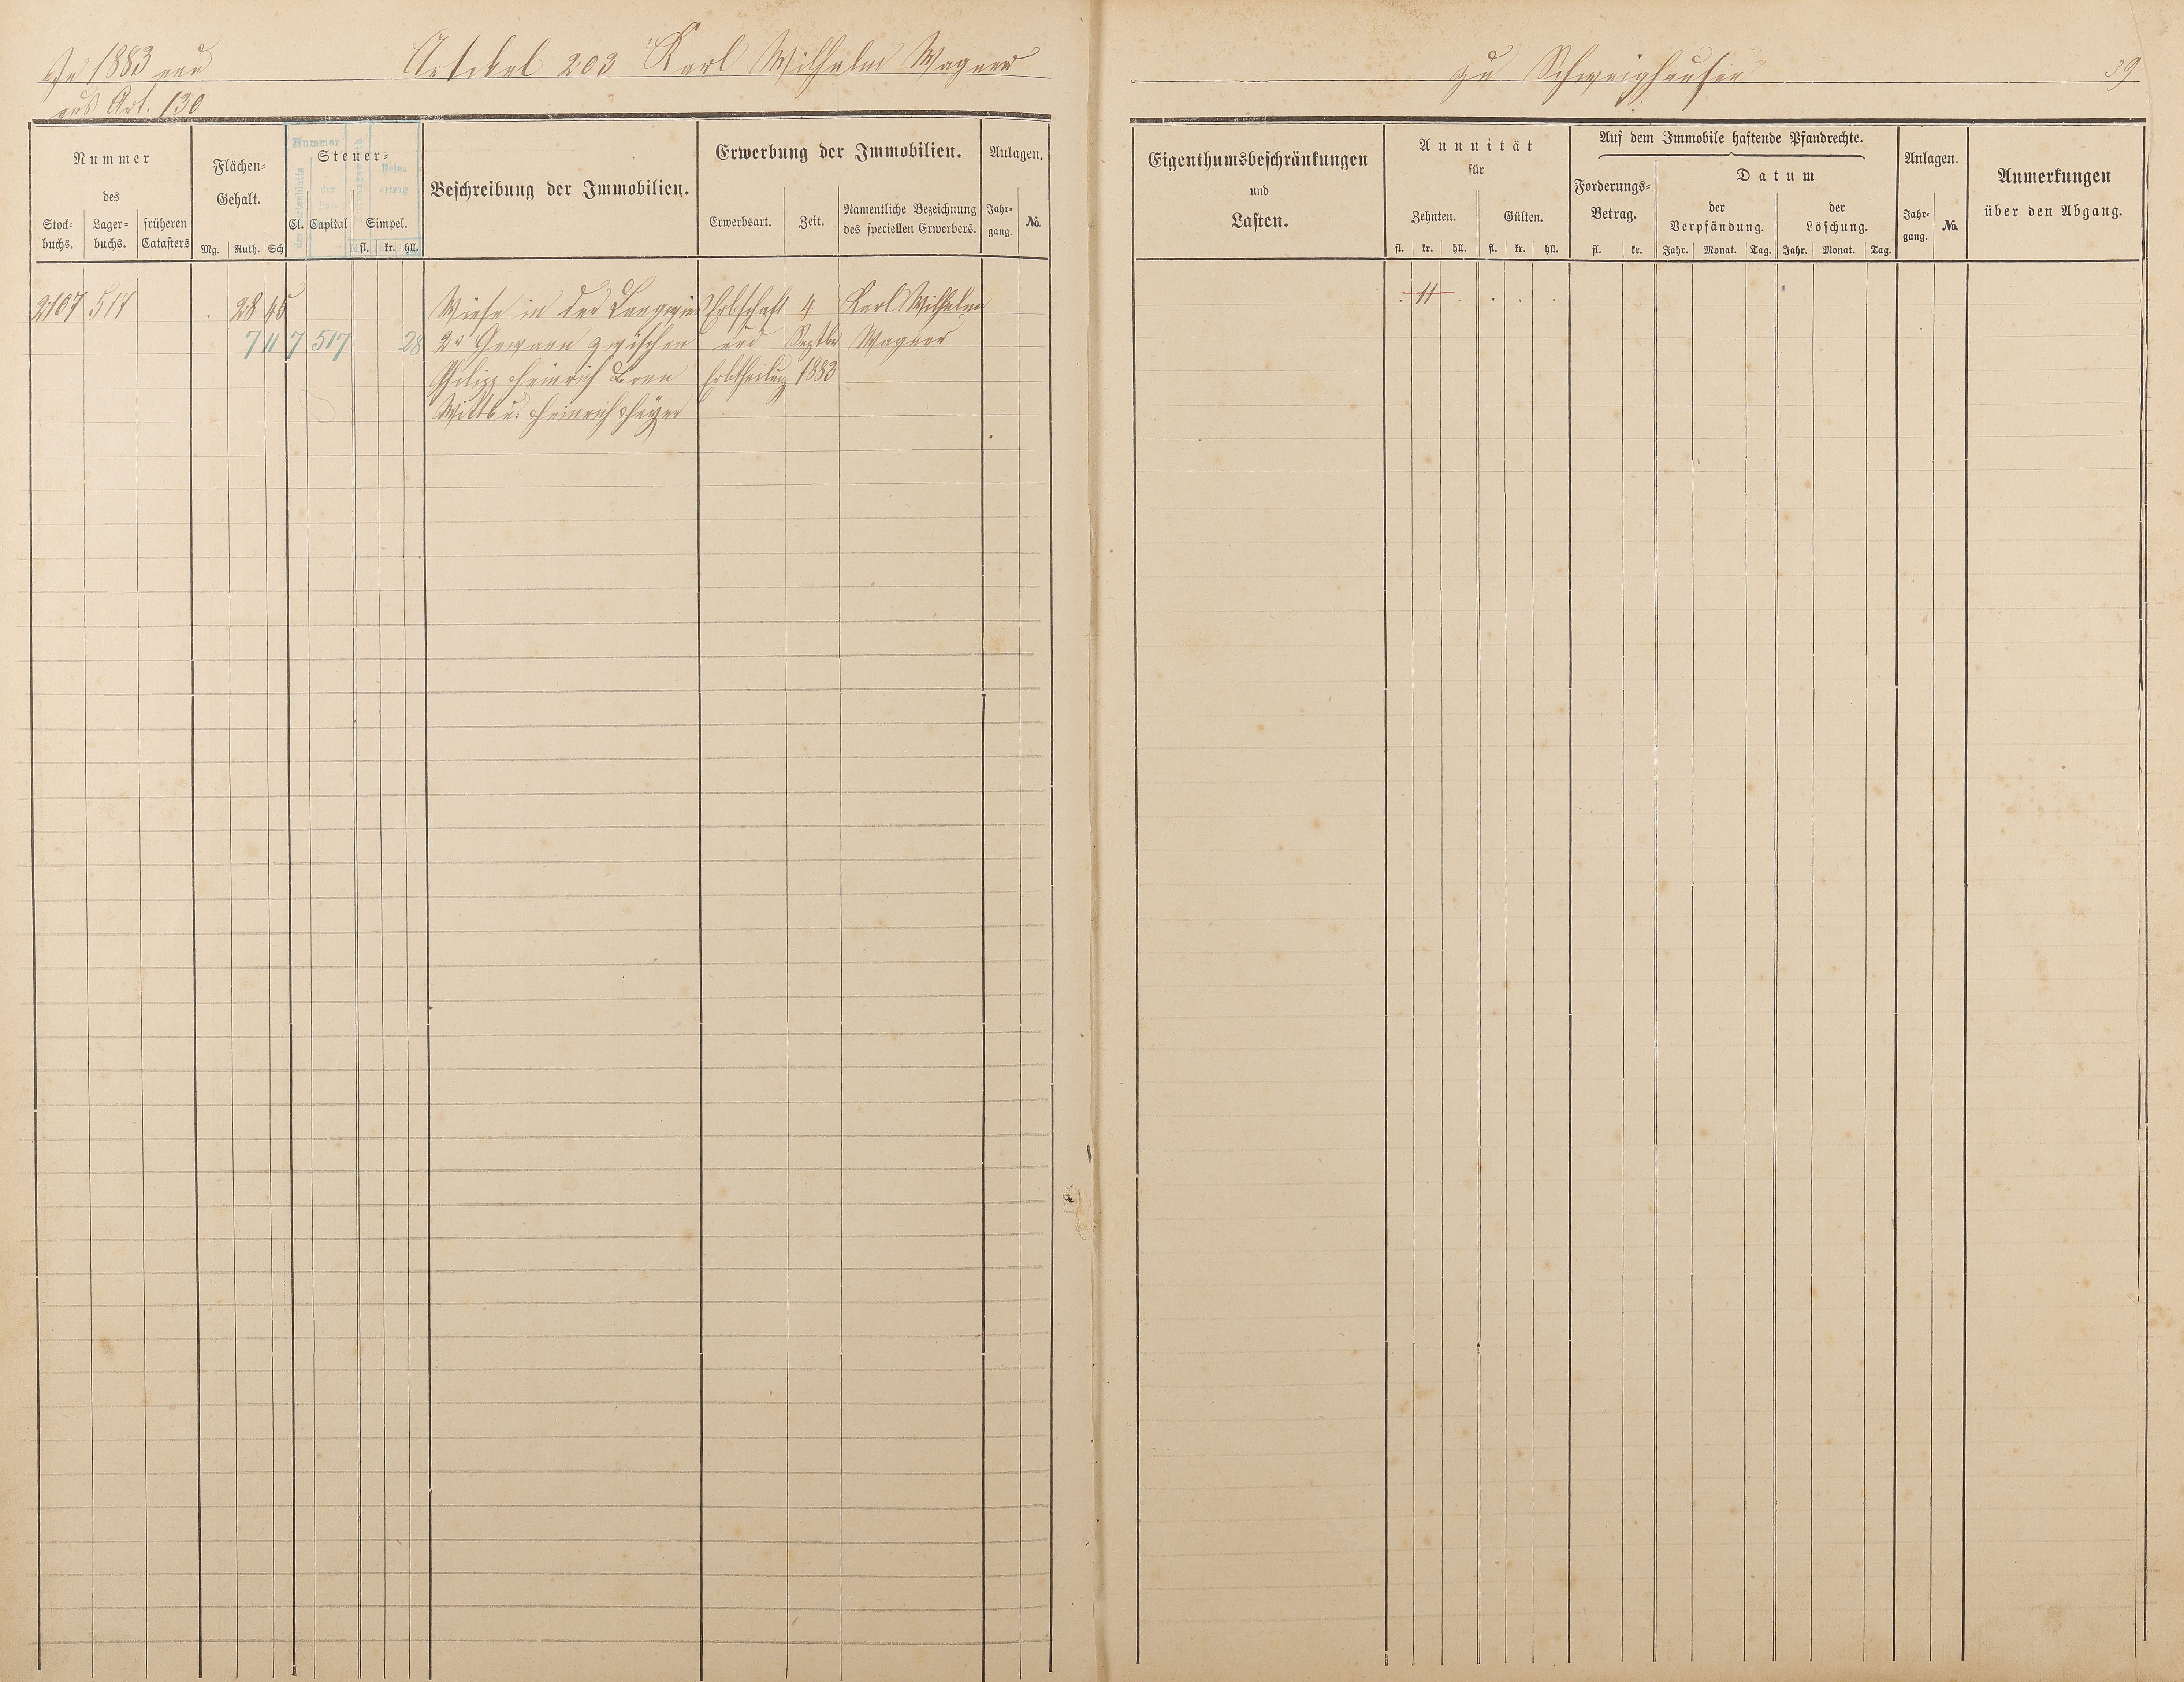 In 1883 neu
aus Art. 130
Artikel 203 Karl Wilhelm Wagner
Nummer
des
Stock-
buchs.
Lager-
buchs.
früheren
Catasters
Flächen-
Gehalt.
Mg. Ruth. Sch
Steuer-
Cl. Capital Simpel.
fl. kr. hll.
Nummer
des
der
Rein-
ertrag
Beschreibung der Immobilien.
Erwerbung der Immobilien.
Erwerbsart. Zeit.
Namentliche Bezeichnung
des speciellen Erwerbers.
Anlagen.
Jahr-
gang.
No.
2107 517 . 28 45 Wiese in der Erbschaft 4. Karl Wilhelm
7 11 7 517 28 2r Gewann zwischen und Septbr Wagner
Philipp Heinrich Erbtheilung 1883
Wittb u. Heinrich
zu Schweighausen
39
Eigenthumsbeschränkungen
und
Lasten.
Annuität
für
Zehnten. Gülten.
fl. kr. hll. fl. kr. hll.
Auf dem Immobile haftende Pfandrechte.
Forderungs-
Betrag.
fl. kr.
Datum
der
Verpfändung.
Jahr. Monat. Tag.
der
Löschung.
Jahr. Monat. Tag.
Anlagen.
Jahr-
gang.
No.
Anmerkungen
über den Abgang.
. 11 . . . .